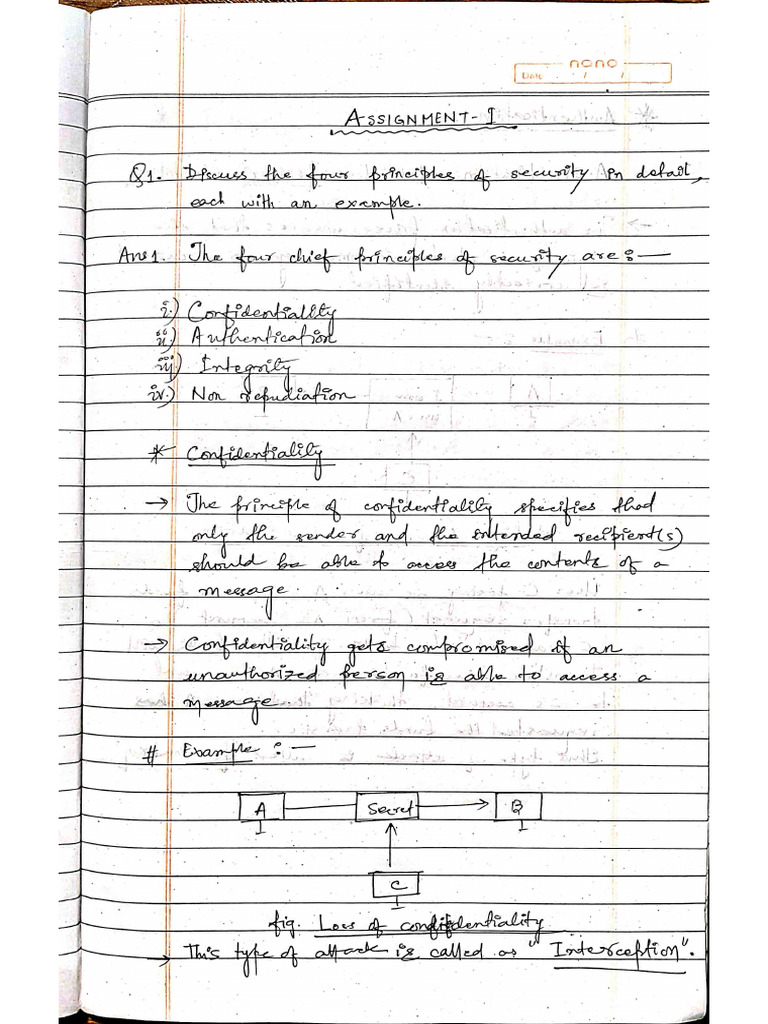 nono
Date / /
ASSIGNMENT-I
Q1. Discuss the four principles of security in detail,
each with an example.
Ans1. The four chief principles of security are:—
i.) Confidentiality
ii) Authentication
iii) Integrity
iv.) Non repudiation
* Confidentiality
→ The principle of confidentiality specifies that
only the sender and the intended recipient(s)
should be able to access the contents of a
message.
→ Confidentiality gets compromised if an
unauthorized person is able to access a
message.
# Example :—
A Secret B
C
fig. Loss of confidentiality
→ This type of attack is called as "Interception".